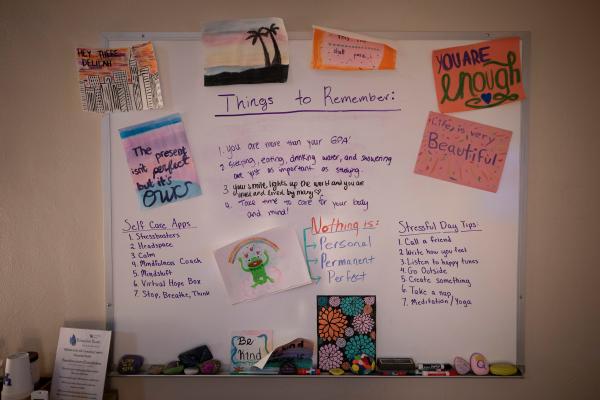 HEY THERE
DELILAH
This too
shall pass.
YOU ARE
enough
Things to Remember:
The present
isn't perfect
but it's
OURS
Life is very
Beautiful
1. you are more than your GPA!
2. Sleeping, eating, drinking water, and showering
are just as important as studying.
3. your smile lights up the world and you are
loved by many
4. Take time to care for your body
and mind!
Self Care Apps
1. Stressbusters
2. Headspace
3. Calm
4. Mindfulness Coach
5. Mindshift
6. Virtual Hope Box
7. Stop, Breathe, Think
Nothing is:
Personal
Permanent
Perfect
Stressful Day Tips:
1. Call a friend
2. Write how you feel
3. Listen to happy tunes
4. Go Outside
5. Create something
6. Take a nap
7. Meditation/Yoga
Be
Kind